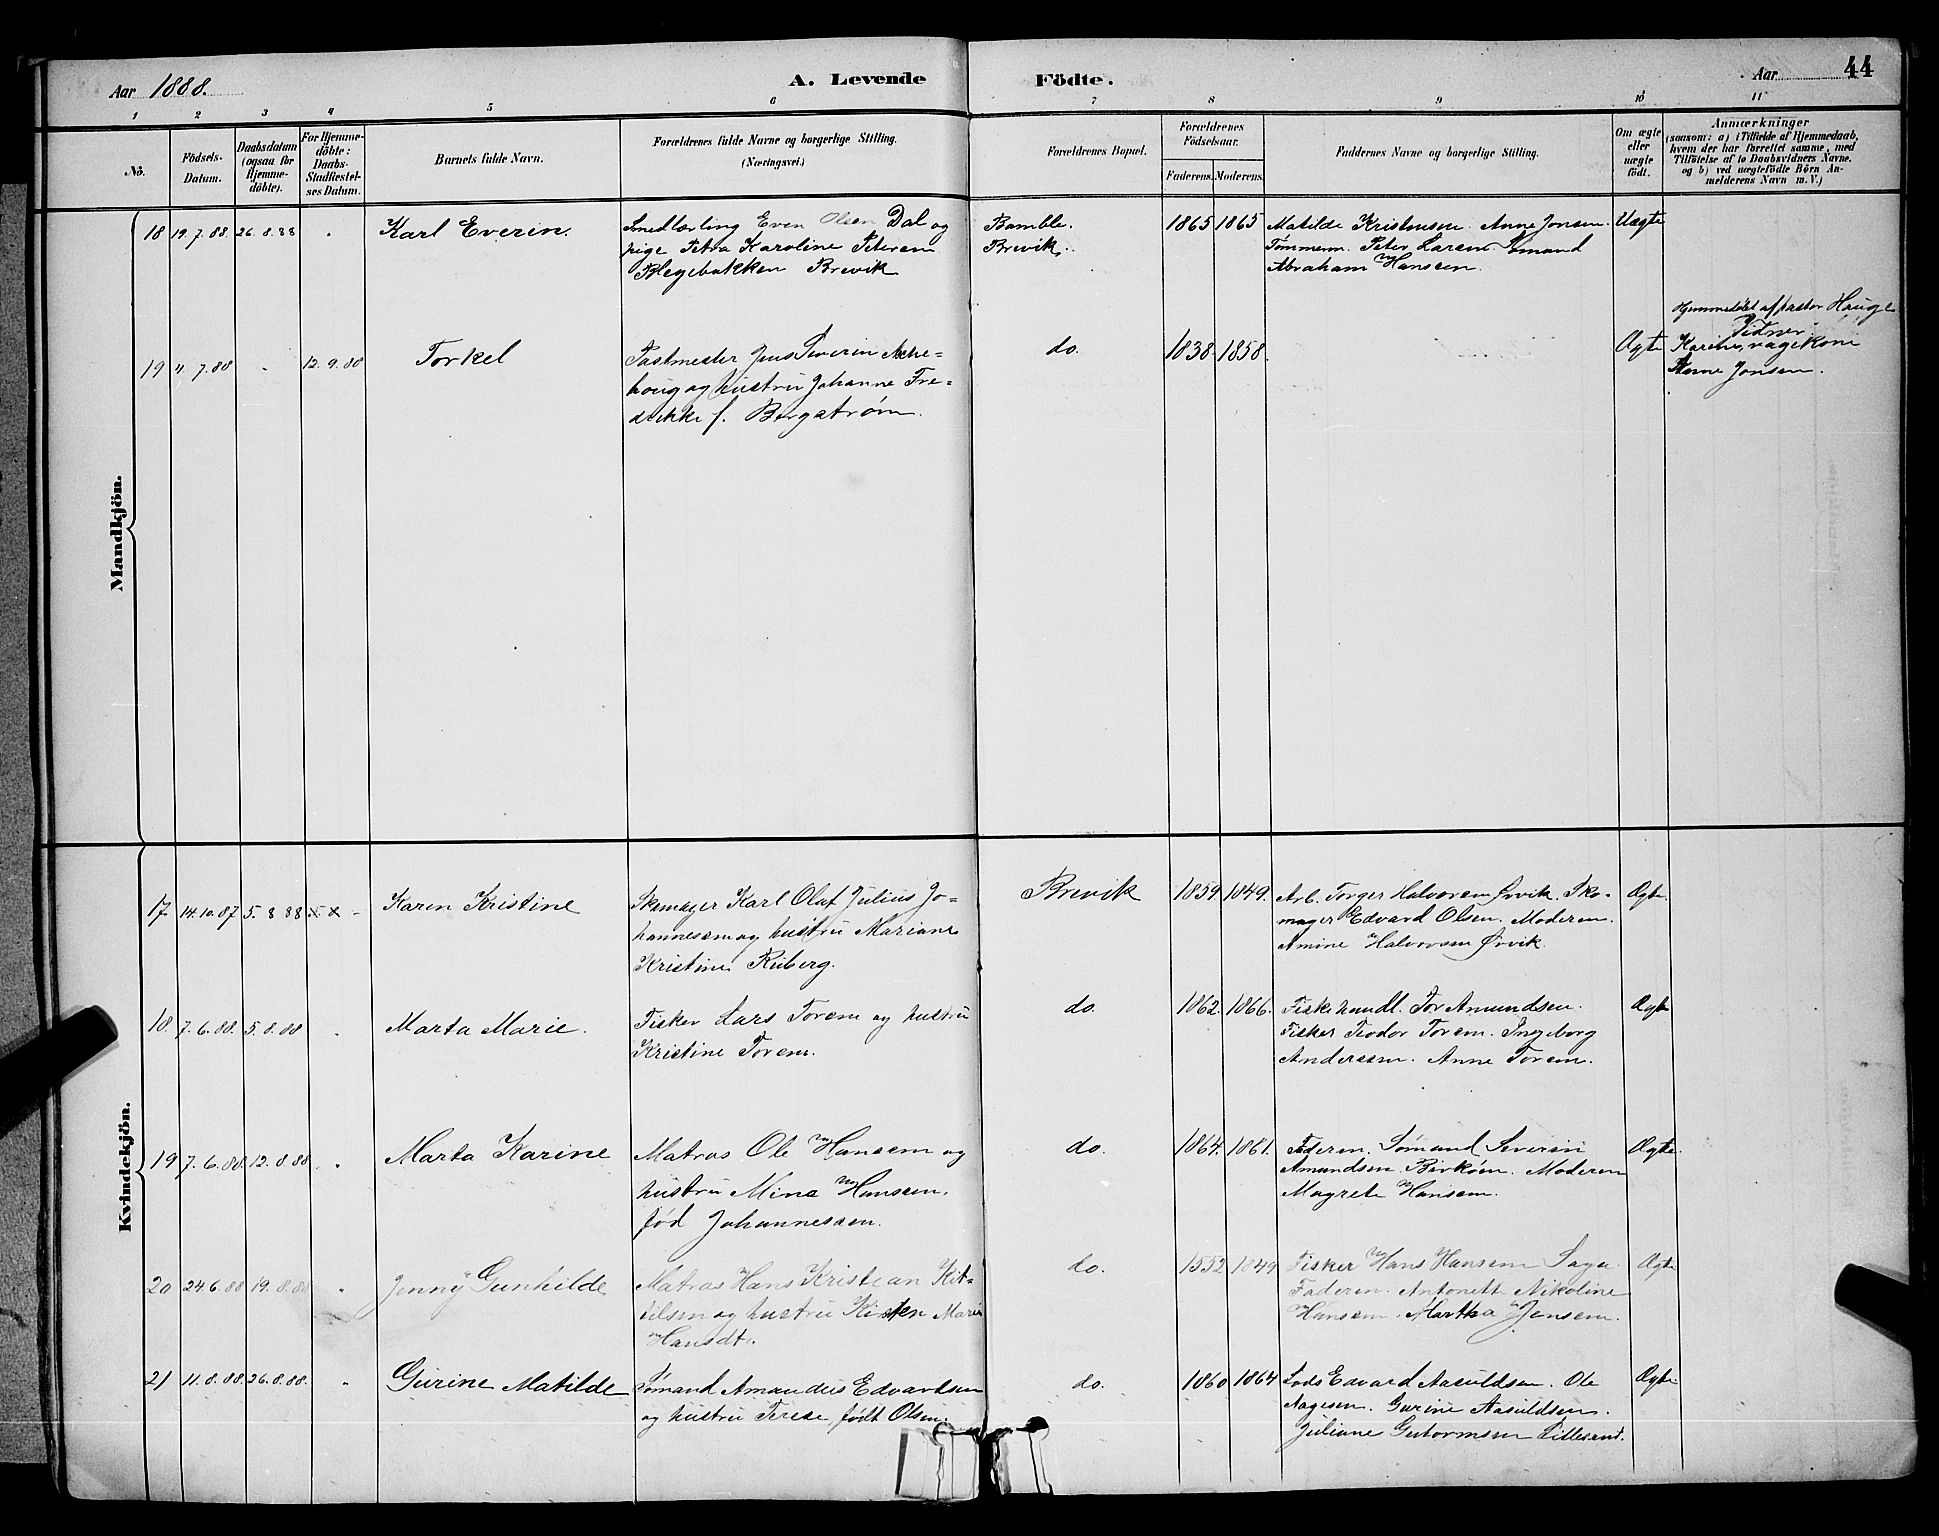 Aar 1888. A. Levende Födte. Aar 44
1 2 3 4 5 6 7 8 9 10 11
No.
Födsels-
Datum.
Daabsdatum
(ogsaa for
Hjemme-
döbte).
For Hjemme-
döbte:
Daabs-
Stadfæstel-
ses Datum.
Barnets fulde Navn.
Forældrenes fulde Navne og borgerlige Stilling.
(Næringsvei.)
Forældrenes Bopæl.
Forældrenes
Födselsaar.
Faderens. Moderens.
Faddernes Navne og borgerlige Stilling.
Om ægte
eller
uægte
födt.
Anmærkninger
(saasom: a) i Tilfælde af Hjemmedaab,
hvem der har forrettet samme, med
Tilföielse af to Daabsvidners Navne.
og b) ved uægtefödte Börn An-
melderens Navn m. V.)
Mandkjön.
18 19.7.88. 26.8.88 Karl Everin.
Smedlærling Even Olsen Dal og
pige Petra Karoline Petersen
Blegebakken Brevik
Bamble.
Brevik.
1865 1865
Matilde Kristensen. Anne Jonsen.
Tømmerm. Peter Larsen. Sømand
Abraham Hansen.
Uægte
19 4.7.88 12.9.88 Torkel
Postmester Jens Severin
houg og hustru Johanne Fre-
drikke f. Bergstrøm.
do. 1838 1858.
Ægte
Hjemmedøbt af pastor Hauge
Vidner:
Karine vaagekone
Anne Jonsen.
Kvindekjön.
17 14.10.87 5.8.88 x x - Karen Kristine
Skomager Karl Olaf Julius Jo-
hannessen og hustru Mariane
Kristine Ruberg.
Brevik 1859 1849.
Arb. Torger Halvorsen Ørvik. Sko-
mager Edvard Olsen. Moderen.
Amine Halvorsen Ørvik.
Ægte
18. 7.6.88. 5.8.88 Marta Marie.
Fisker Lars Torsen og hustru
Kristine Torsen.
do. 1862. 1866.
Fiskehandl. Tor Amundsen.
Fisker Teodor Torsen. Ingeborg
Anderssen. Anne Torsen.
Ægte
19 7.6.88. 12.8.88 Marta Karine
Matros Ole Hansen og
hustru Mina Hansen.
fød Johannessen.
do. 1864. 1861.
Faderen. Sømand Severin
Amundsen Birkøen. Moderen
Magrete Hansen.
Ægte.
20 24.6.88 19.8.88 Jenny Gunhilde
Matros Hans Kristian Kit-
tilsen og hustru Kirsten Marie
Hansdt.
do. 1552 1849
Fisker Hans Hansen Saga
Faderen. Antonette Nikoline
Hansen. Martha Jensen.
Ægte
21 11.8.88. 26.8.88. Gurine Matilde
Sømand Amandus Edvardsen
og hustru Terese født Olsen.
do. 1860 1864
Lods Edvard Aasuldsen. Ole
Aagesen. Gurine Aasuldsen.
Juliane Gutormsen Lillesand.
Ægte